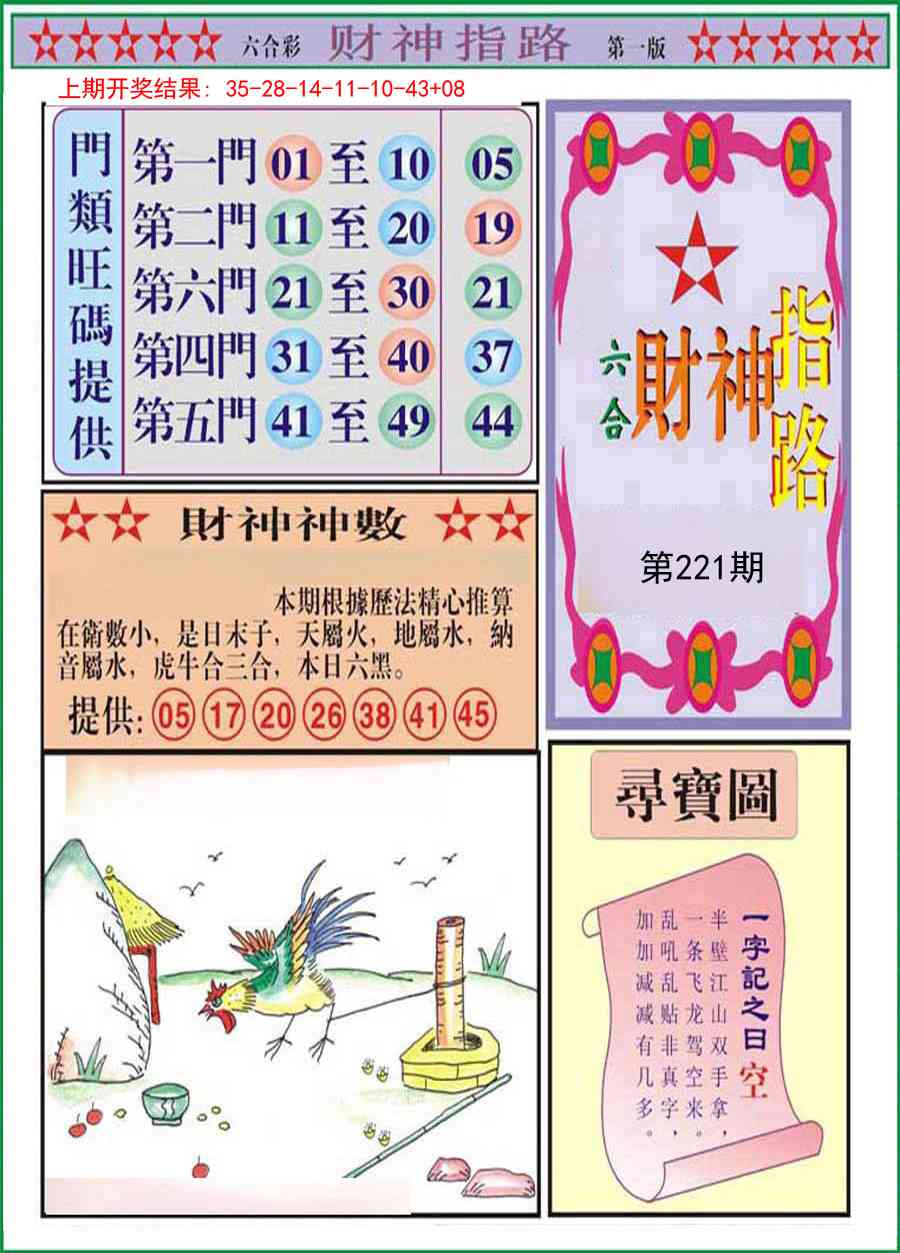 六合彩 财神指路 第一版
上期开奖结果：35-28-14-11-10-43+08
門類旺碼提供
第一門 01 至 10 05
第二門 11 至 20 19
第六門 21 至 30 21
第四門 31 至 40 37
第五門 41 至 49 44
六合
財神
指路
第221期
財神神數
本期根據歷法精心推算
在衛數小，是日末子，天屬火，地屬水，納
音屬水，虎牛合三合，本日六黑。
提供: 05 17 20 26 38 41 45
尋寶圖
一字記之曰空
半壁江山双手拿，
一条飞龙驾空来，
乱吼乱贴非真字，
加加减减有几多。